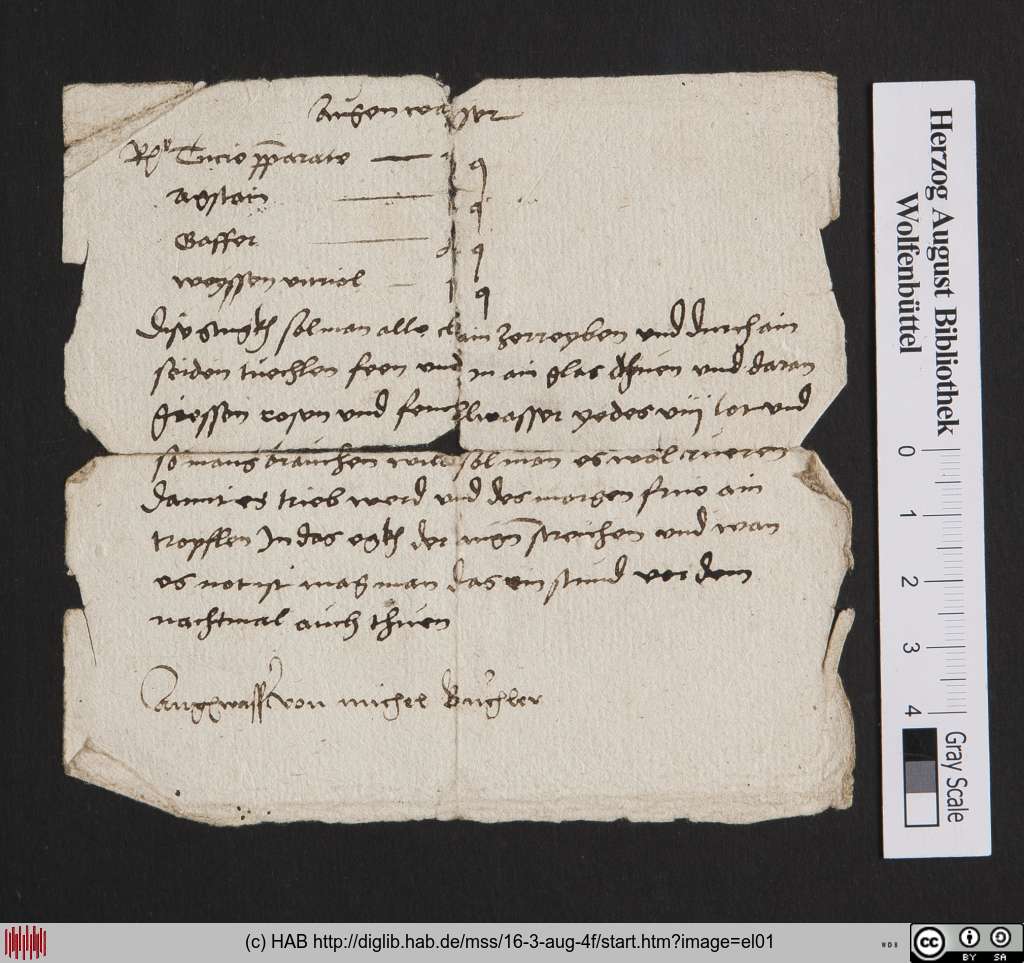 Augen wasser
Rp Tucie pparate — 1 q
agstain — 1 q
Gaffer — 1 q
weyssen vitriol — 1 q
Dise stugkh sol man alle clain zerreyben und durch ain
seiden tuechlen seen und in ain glas thuen und daran
giessen rosen und fenchlwasser yedes viij lot und
so mans brauchen will sol man es wol rueren
damit es trieb werd und des morgen frue ain
tropflen In das egkh der augn streichen und wan
es not ist mag man das ein stund vor dem
nachtmal auch thuen
Augenwasser von michel Büchler
Herzog August Bibliothek
Wolfenbüttel
0 1 2 3 4
Gray Scale
(c) HAB http://diglib.hab.de/mss/16-3-aug-4f/start.htm?image=el01
WDB
cc BY SA